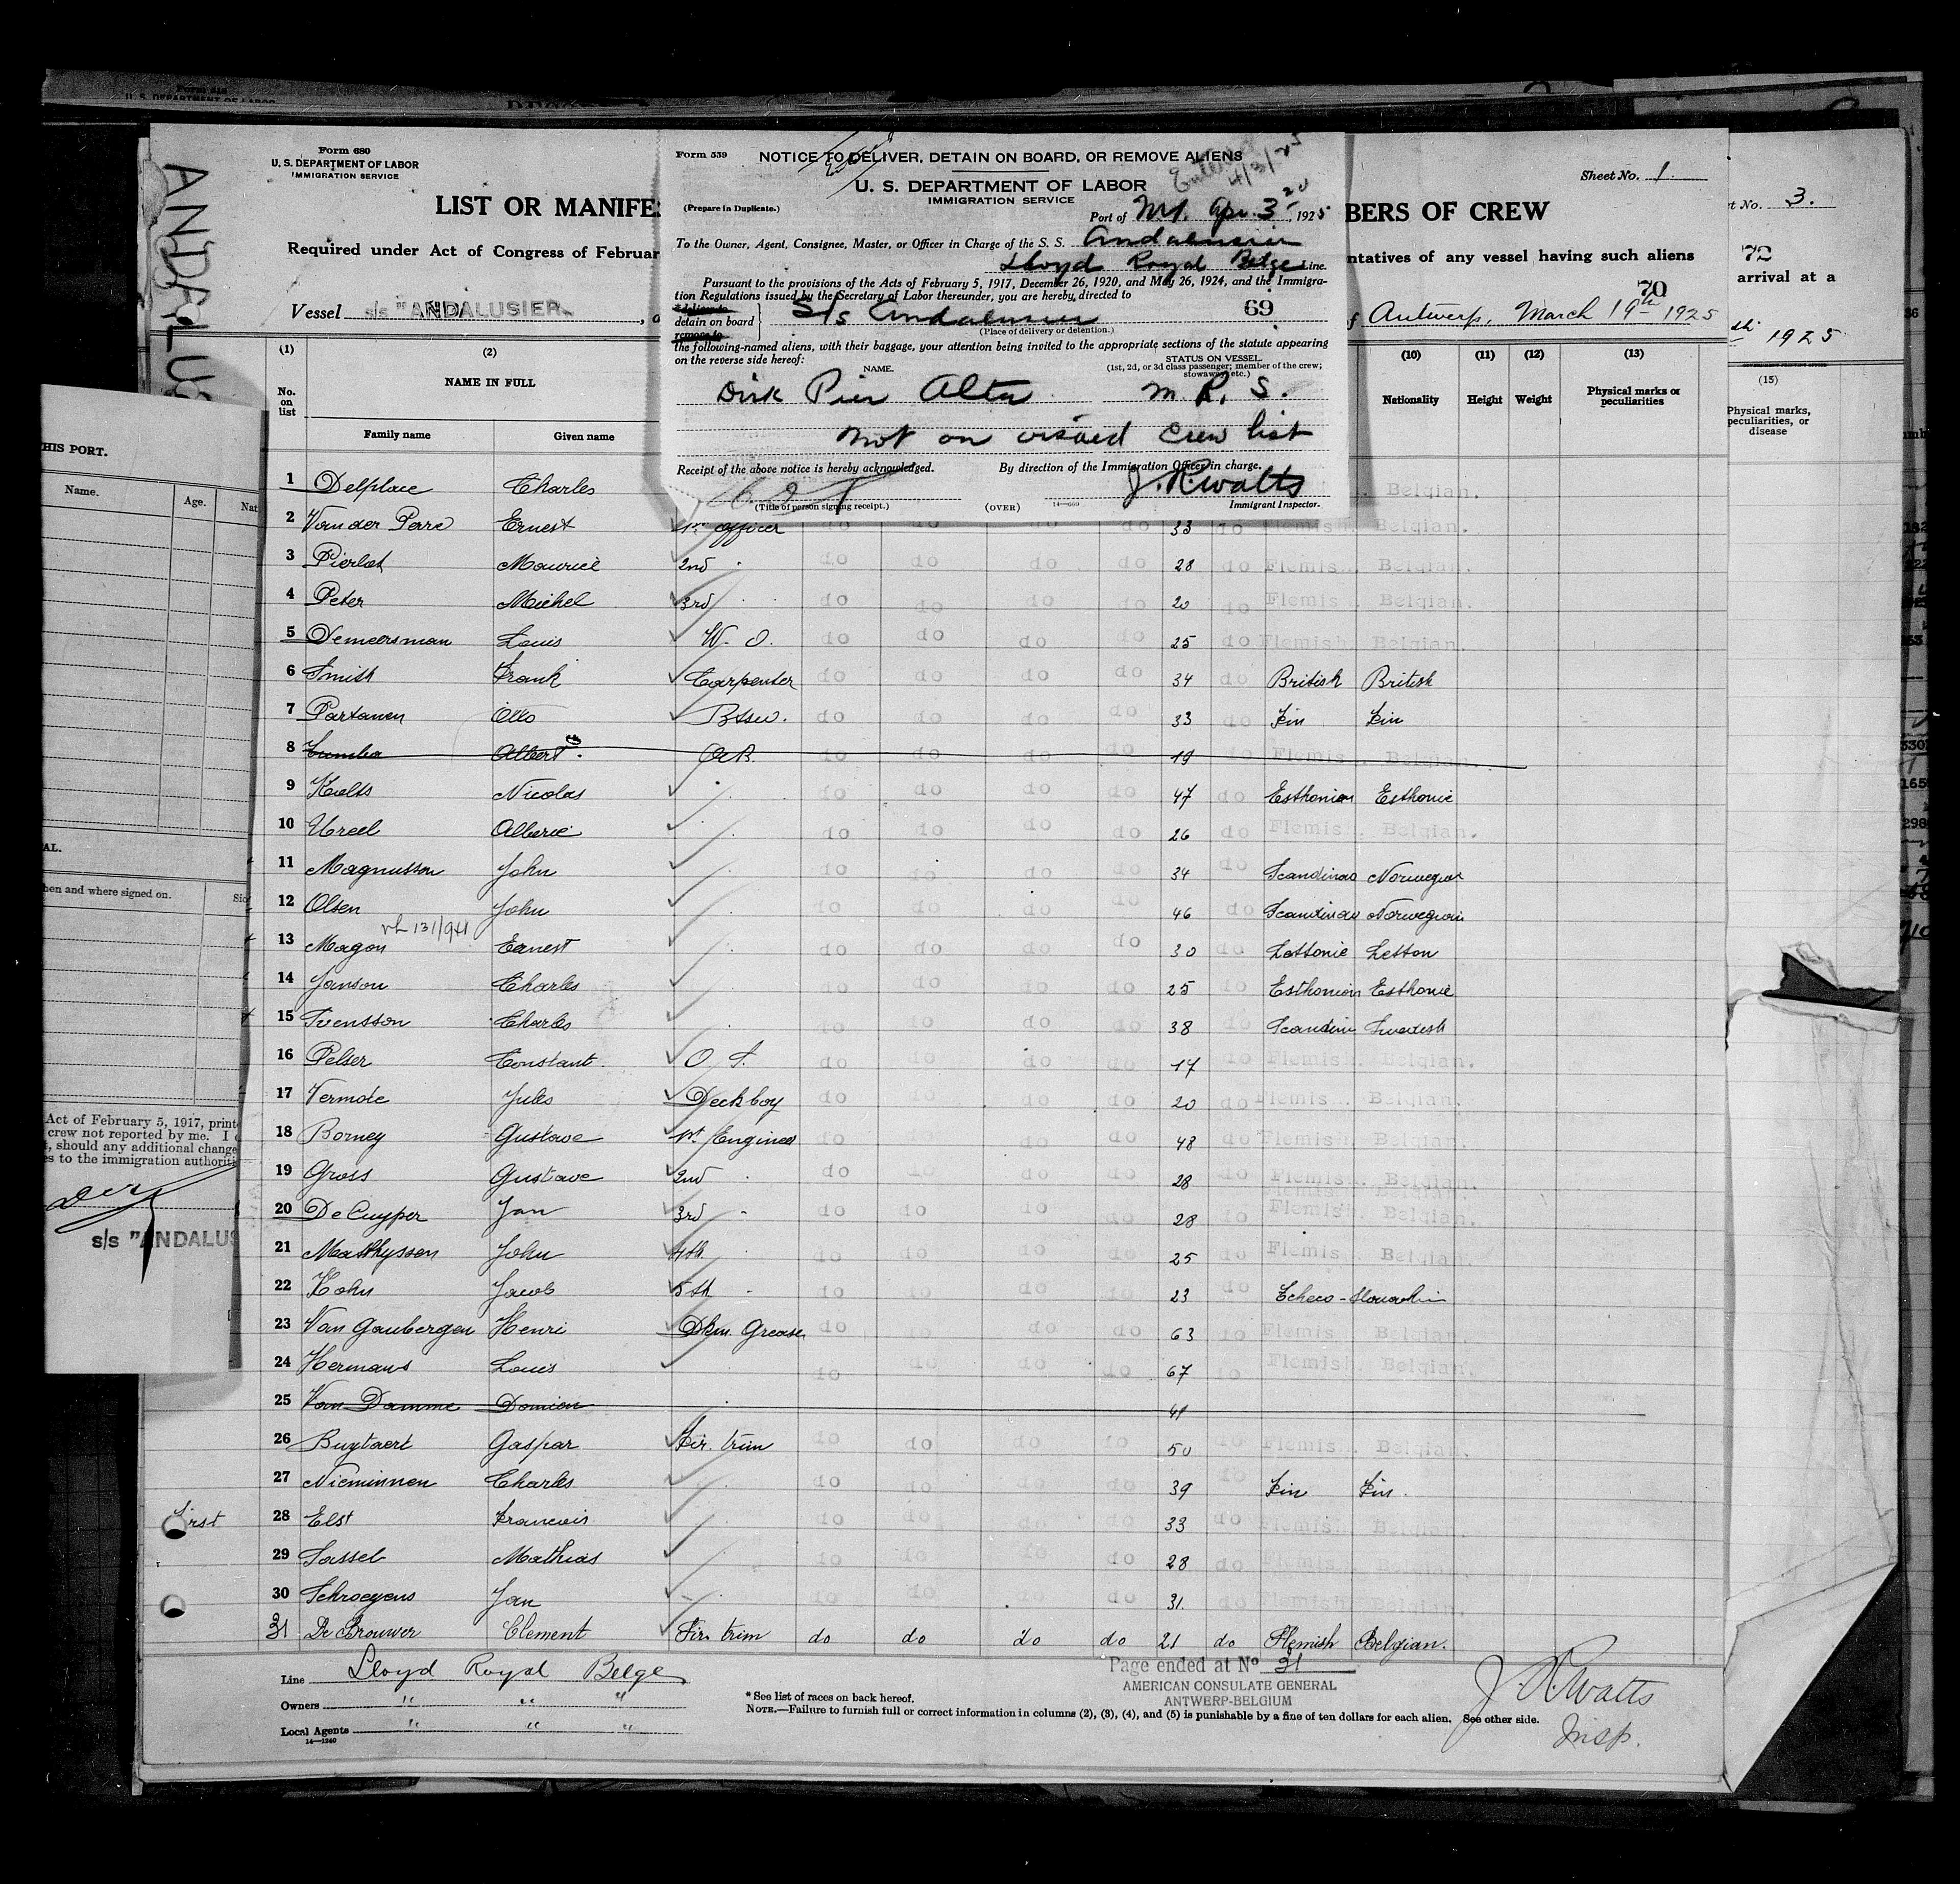 Form 680
U. S. DEPARTMENT OF LABOR
IMMIGRATION SERVICE
LIST OR MANIFES
BERS OF CREW
Sheet No. 1.
Required under Act of Congress of Februar
ntatives of any vessel having such aliens
70
Vessel s/s "ANDALUSIER.
Antwerp, March 19th 1925
ANDALUS
Form 539
NOTICE TO DELIVER, DETAIN ON BOARD, OR REMOVE ALIENS
4/3/25
U. S. DEPARTMENT OF LABOR
IMMIGRATION SERVICE
(Prepare in Duplicate.)
Port of N.Y. Apr. 3, 1925
To the Owner, Agent, Consignee, Master, or Officer in Charge of the S. S. Andalusier
Lloyd Royal Belge Line.
Pursuant to the provisions of the Acts of February 5, 1917, December 26, 1920, and May 26, 1924, and the Immigra-
tion Regulations issued by the Secretary of Labor thereunder, you are hereby directed to
deliver to
detain on board
remove to
S/s Andalusier
69
(Place of delivery or detention.)
the following-named aliens, with their baggage, your attention being invited to the appropriate sections of the statute appearing
on the reverse side hereof:
NAME.
STATUS ON VESSEL.
(1st, 2d, or 3d class passenger; member of the crew;
stowaway, etc.)
Dirk Pier Alta M. R. S.
not on visaed crew list
Receipt of the above notice is hereby acknowledged.
By direction of the Immigration Officer in charge.
J. R. Watts
(Title of person signing receipt.)
(OVER)
14—600
Immigrant Inspector.
(1) (2) (10) (11) (12) (13)
No. on list
NAME IN FULL
Family name Given name
Nationality Height Weight Physical marks or peculiarities
1 Delplace Charles Belgian.
2 Van der Perre Ernest 1st officer do do do do 33 do Flemish. Belgian.
3 Pierlot Maurice 2nd " do do do do 28 do Flemish. Belgian.
4 Peter Michel 3rd " do do do do 20 do Flemis. Belgian.
5 Demeersman Louis W. O. do do do do 25 do Flemish. Belgian.
6 Smith Frank Carpenter do do do do 34 do British British
7 Partanen Otto Btsw. do do do do 33 do Fin Fin
8 Albert do do do do 19 do Flemis. Belgian.
9 Kults Nicolas do do do do 47 do Esthonian Esthonie
10 Ureel Alberic do do do do 26 do Flemish. Belgian.
11 Magnusson John do do do do 34 do Scandinav Norwegian
12 Olsen John do do do do 46 do Scandinav Norwegian
13 Magon Earnest do do do do 30 do Lettonie Letton
14 Janson Charles do do do do 25 do Esthonian Esthonie
15 Svensson Charles do do do do 38 do Scandin Swedish
16 Pelser Constant. O. S. do do do do 17 do Flemis. Belgian.
17 Vermote Jules Deckboy do do do do 20 do Flemish. Belgian.
18 Borney Gustave 1st Engineer do do do 48 do Flemish. Belgian.
19 Gross Gustave 2nd " do do do do 28 do Flemish. Belgian.
20 De Cuyper Jan 3rd " do do do do 28 do Flemish. Belgian.
21 Matthyssen John 4th. do do do do 25 do Flemis. Belgian.
22 Kohn Jacob 5th " do do do do 23 do Tcheco-Slovakia
23 Van Gaubergen Henri Dkm. Grease do do do do 63 do Flemis. Belgian
24 Hermans Louis do do do do 67 do Flemish. Belgian.
25 Van Damme Domien 41
26 Buytaert Gaspar Fir. trim do do do do 50 do Flemis. Belgian.
27 Nieminnen Charles do do do do 39 do Fin Fin.
28 Elst Francois do do do do 33 do Flemish. Belgian.
29 Sassel Mathias do do do do 28 do Flemis. Belgian.
30 Schroeyens Jan do do do 31. do Flemish. Belgian
31 De Brouwer Clement Fir. trim do do do do 21 do Flemish Belgian.
Page ended at No 31
AMERICAN CONSULATE GENERAL
ANTWERP-BELGIUM
Line Lloyd Royal Belge
Owners " " "
Local Agents " " "
14—1240
* See list of races on back hereof.
NOTE.—Failure to furnish full or correct information in columns (2), (3), (4), and (5) is punishable by a fine of ten dollars for each alien. See other side.
J. R. Watts
Insp.
HIS PORT.
Name. Age. Nat
AL.
hen and where signed on. Sig
Act of February 5, 1917, print
crew not reported by me. I
, should any additional change
es to the immigration authoriti
s/s "ANDALUS
t No. 3.
72
arrival at a
1925
(15)
Physical marks, peculiarities, or disease